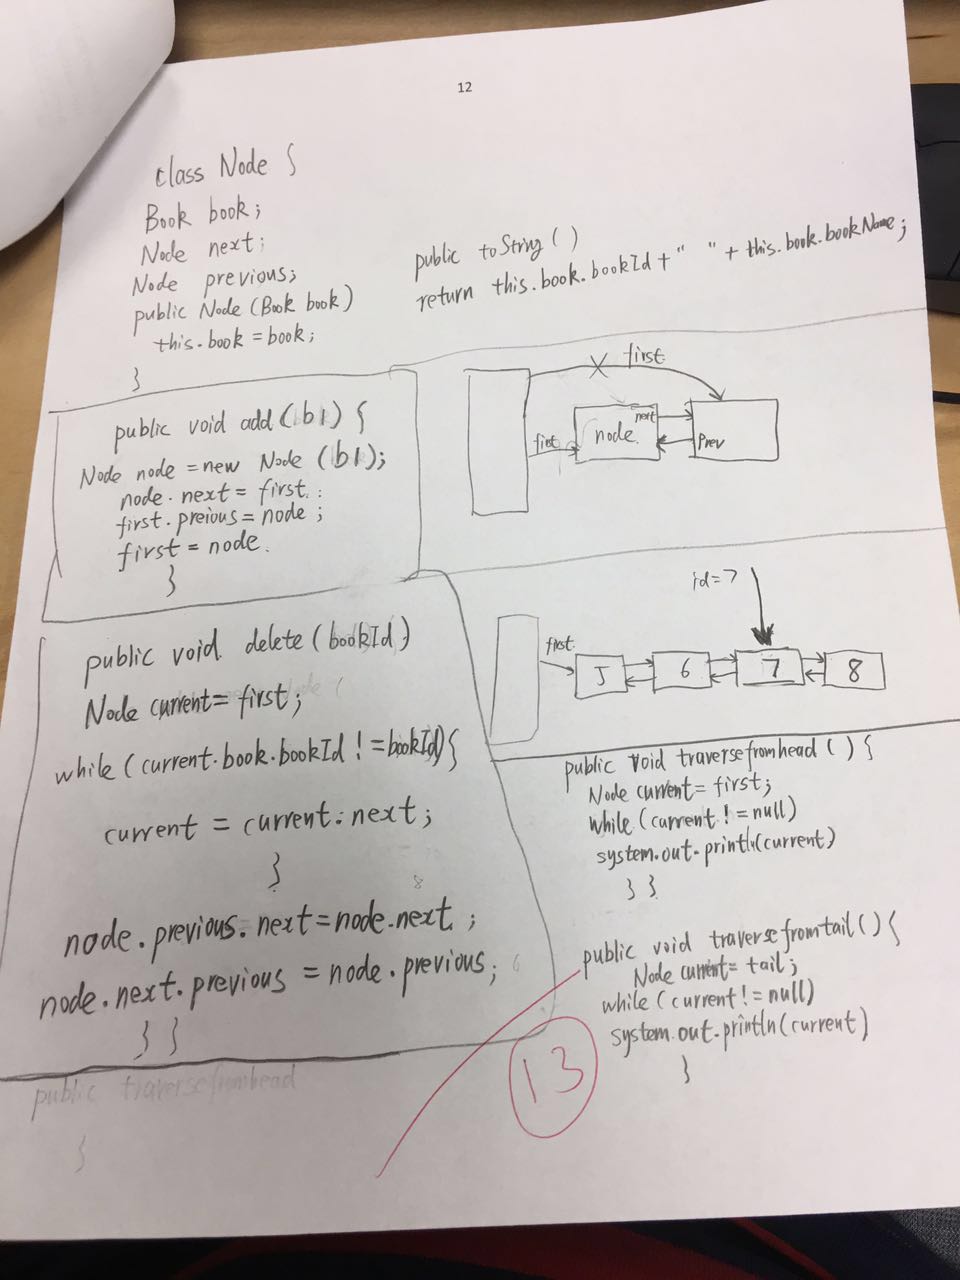 12
class Node {
Book book;
Node next;
Node previous;
public Node (Book book)
this.book = book;
}
public toString ( )
return this.book.bookId + " " + this.book.bookName;
public void add (b1) {
Node node = new Node (b1);
node.next = first.;
first.preious = node ;
first = node.
}
first
first
node.
next
Prev
public void delete (bookId)
Node current = first;
while (current.book.bookId != bookId) {
current = current.next;
}
node.previous.next = node.next ;
node.next.previous = node.previous;
} }
public traversefromhead
}
id=7
first
5 6 7 8
public void traversefromhead ( ) {
Node current = first;
while (current != null)
system.out.println(current)
} }
public void traversefromtail ( ) {
Node current = tail;
while (current != null)
system.out.println(current)
}
13